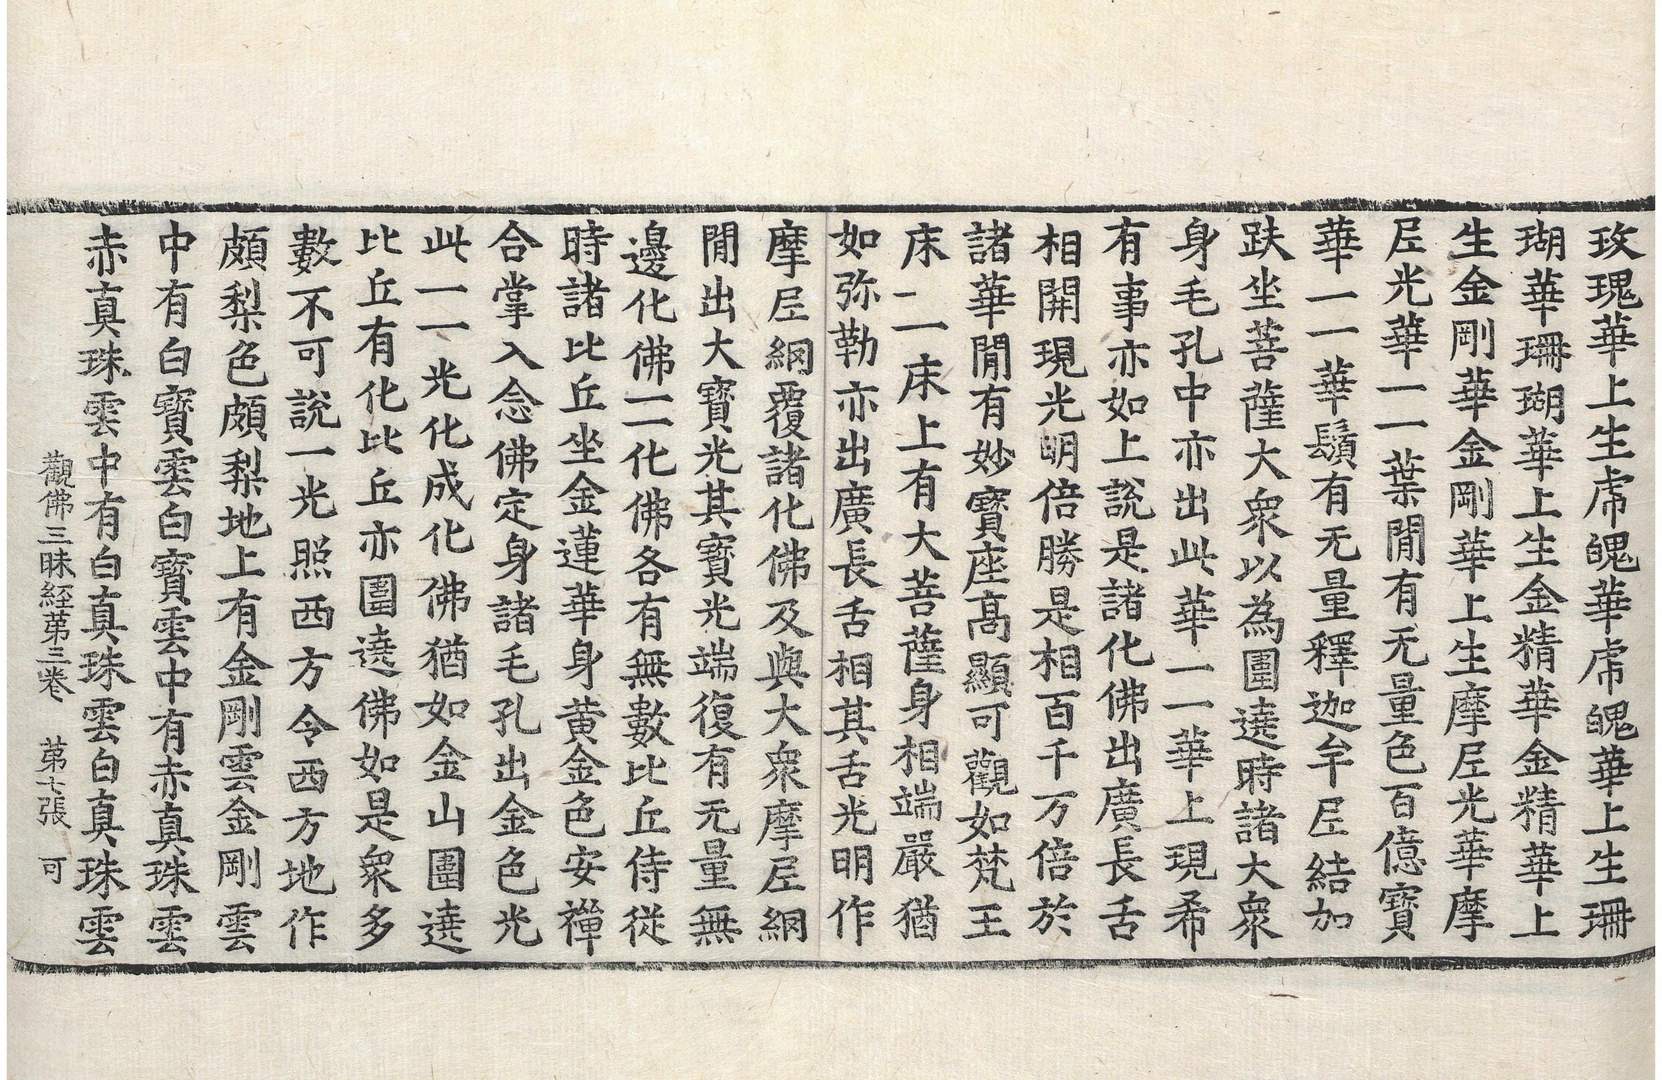 玫瑰華上生虎魄華虎魄華上生珊
瑚華珊瑚華上生金精華金精華上
生金剛華金剛華上生摩尼光華摩
尼光華一一葉閒有无量色百億寶
華一一華鬚有无量釋迦牟尼結加
趺坐菩薩大衆以為圍遶時諸大衆
身毛孔中亦出此華一一華上現希
有事亦如上說是諸化佛出廣長舌
相開現光明倍勝是相百千万倍於
諸華閒有妙寶座高顯可觀如梵王
床一一床上有大菩薩身相端嚴猶
如弥勒亦出廣長舌相其舌光明作
摩尼網覆諸化佛及與大衆摩尼網
閒出大寶光其寶光端復有无量無
邊化佛一一化佛各有無數比丘侍從
時諸比丘坐金蓮華身黃金色安禪
合掌入念佛定身諸毛孔出金色光
此一一光化成化佛猶如金山圍遶
比丘有化比丘亦圍遶佛如是衆多
數不可說一光照西方令西方地作
頗梨色頗梨地上有金剛雲金剛雲
中有白寶雲白寶雲中有赤真珠雲
赤真珠雲中有白真珠雲白真珠雲
觀佛三昧經第三卷 第七張 可